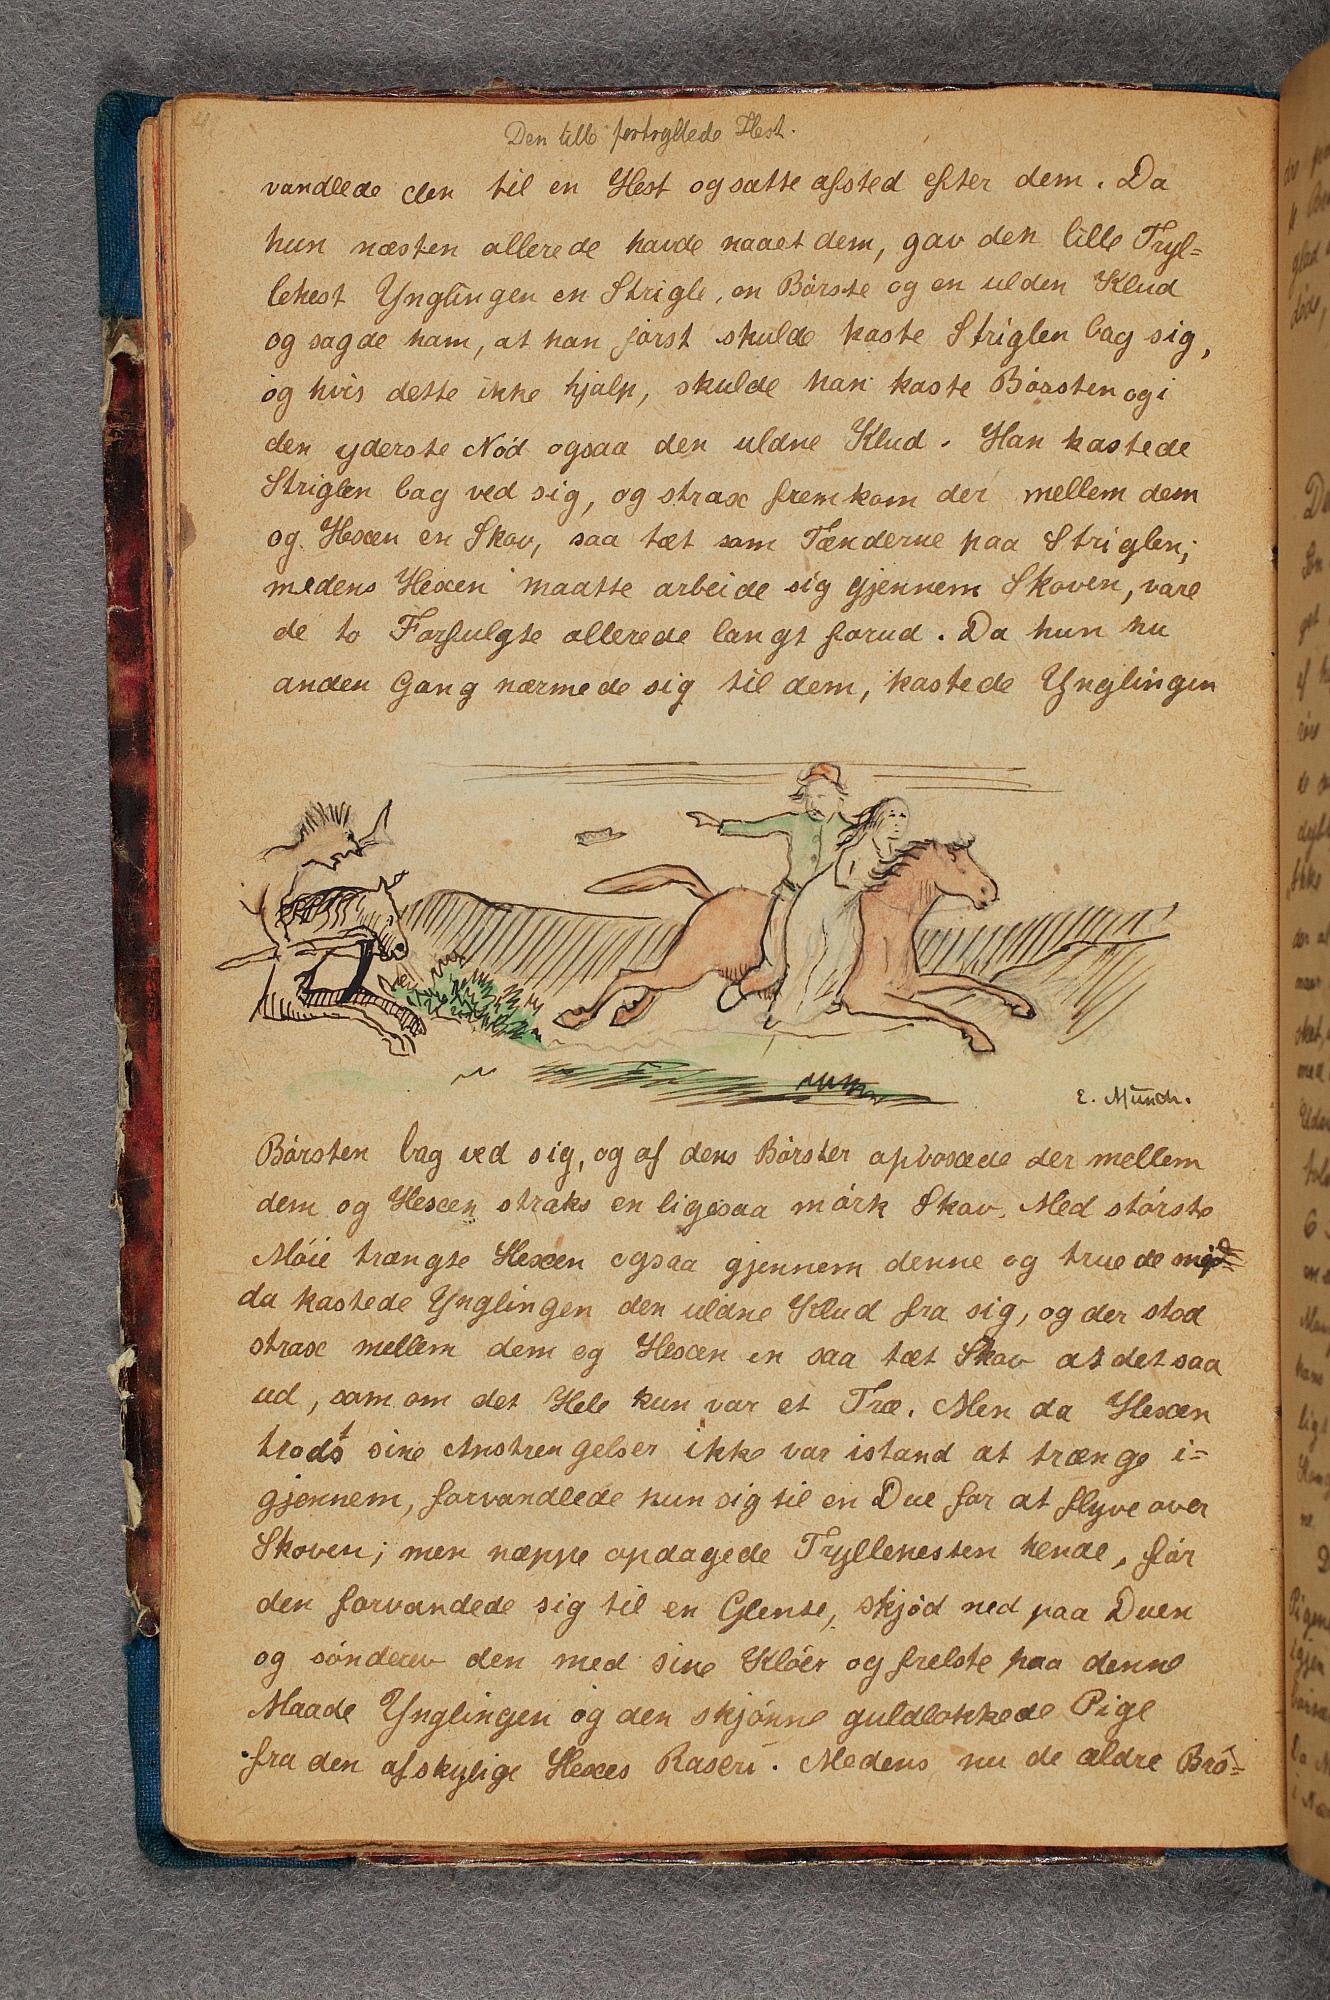 Den lille fortryllede Hest.
vandlede den til en Hest og satte afsted efter dem. Da
hun næsten allerede havde naaet dem, gav den lille Tryl=
lehest Ynglingen en Strigle, en Börste og en ulden Klud
og sagde ham, at han först skulde kaste Striglen bag sig,
og hvis dette ikke hjalp, skulde han kaste Börsten og i
den yderste Nöd ogsaa den uldne Klud. Han kastede
Striglen bag ved sig, og strax fremkom der mellem dem
og Hexen en Skov, saa tæt som Tænderne paa Striglen;
medens Hexen maatte arbeide sig gjennem Skoven, vare
de to Forfulgte allerede langt forud. Da hun nu
anden Gang nærmede sig til dem, kastede Ynglingen
E. Munch.
Börsten bag ved sig, og af dens Börster opvoxede der mellem
dem og Hexen straks en ligesaa mörk Skov. Med störste
Möie trængte Hexen ogsaa gjennem denne og truede
da kastede Ynglingen den uldne Klud fra sig, og der stod
strax mellem dem og Hexen en saa tæt Skov at det saa
ud, som om det Hele kun var et Træ. Men da Hexen
trods sine Anstrengelser ikke var istand at trænge i=
gjennem, forvandlede hun sig til en Due for at flyve over
Skoven; men næppe opdagede Tryllehesten hende, för
den forvandede sig til en Glente, skjöd ned paa Duen
og sönderrev den med sine Klöer og frelste paa denne
Maade Ynglingen og den skjönne guldlokkede Pige
fra den afskylige Hexes Raseri. Medens nu de ældre Brö=